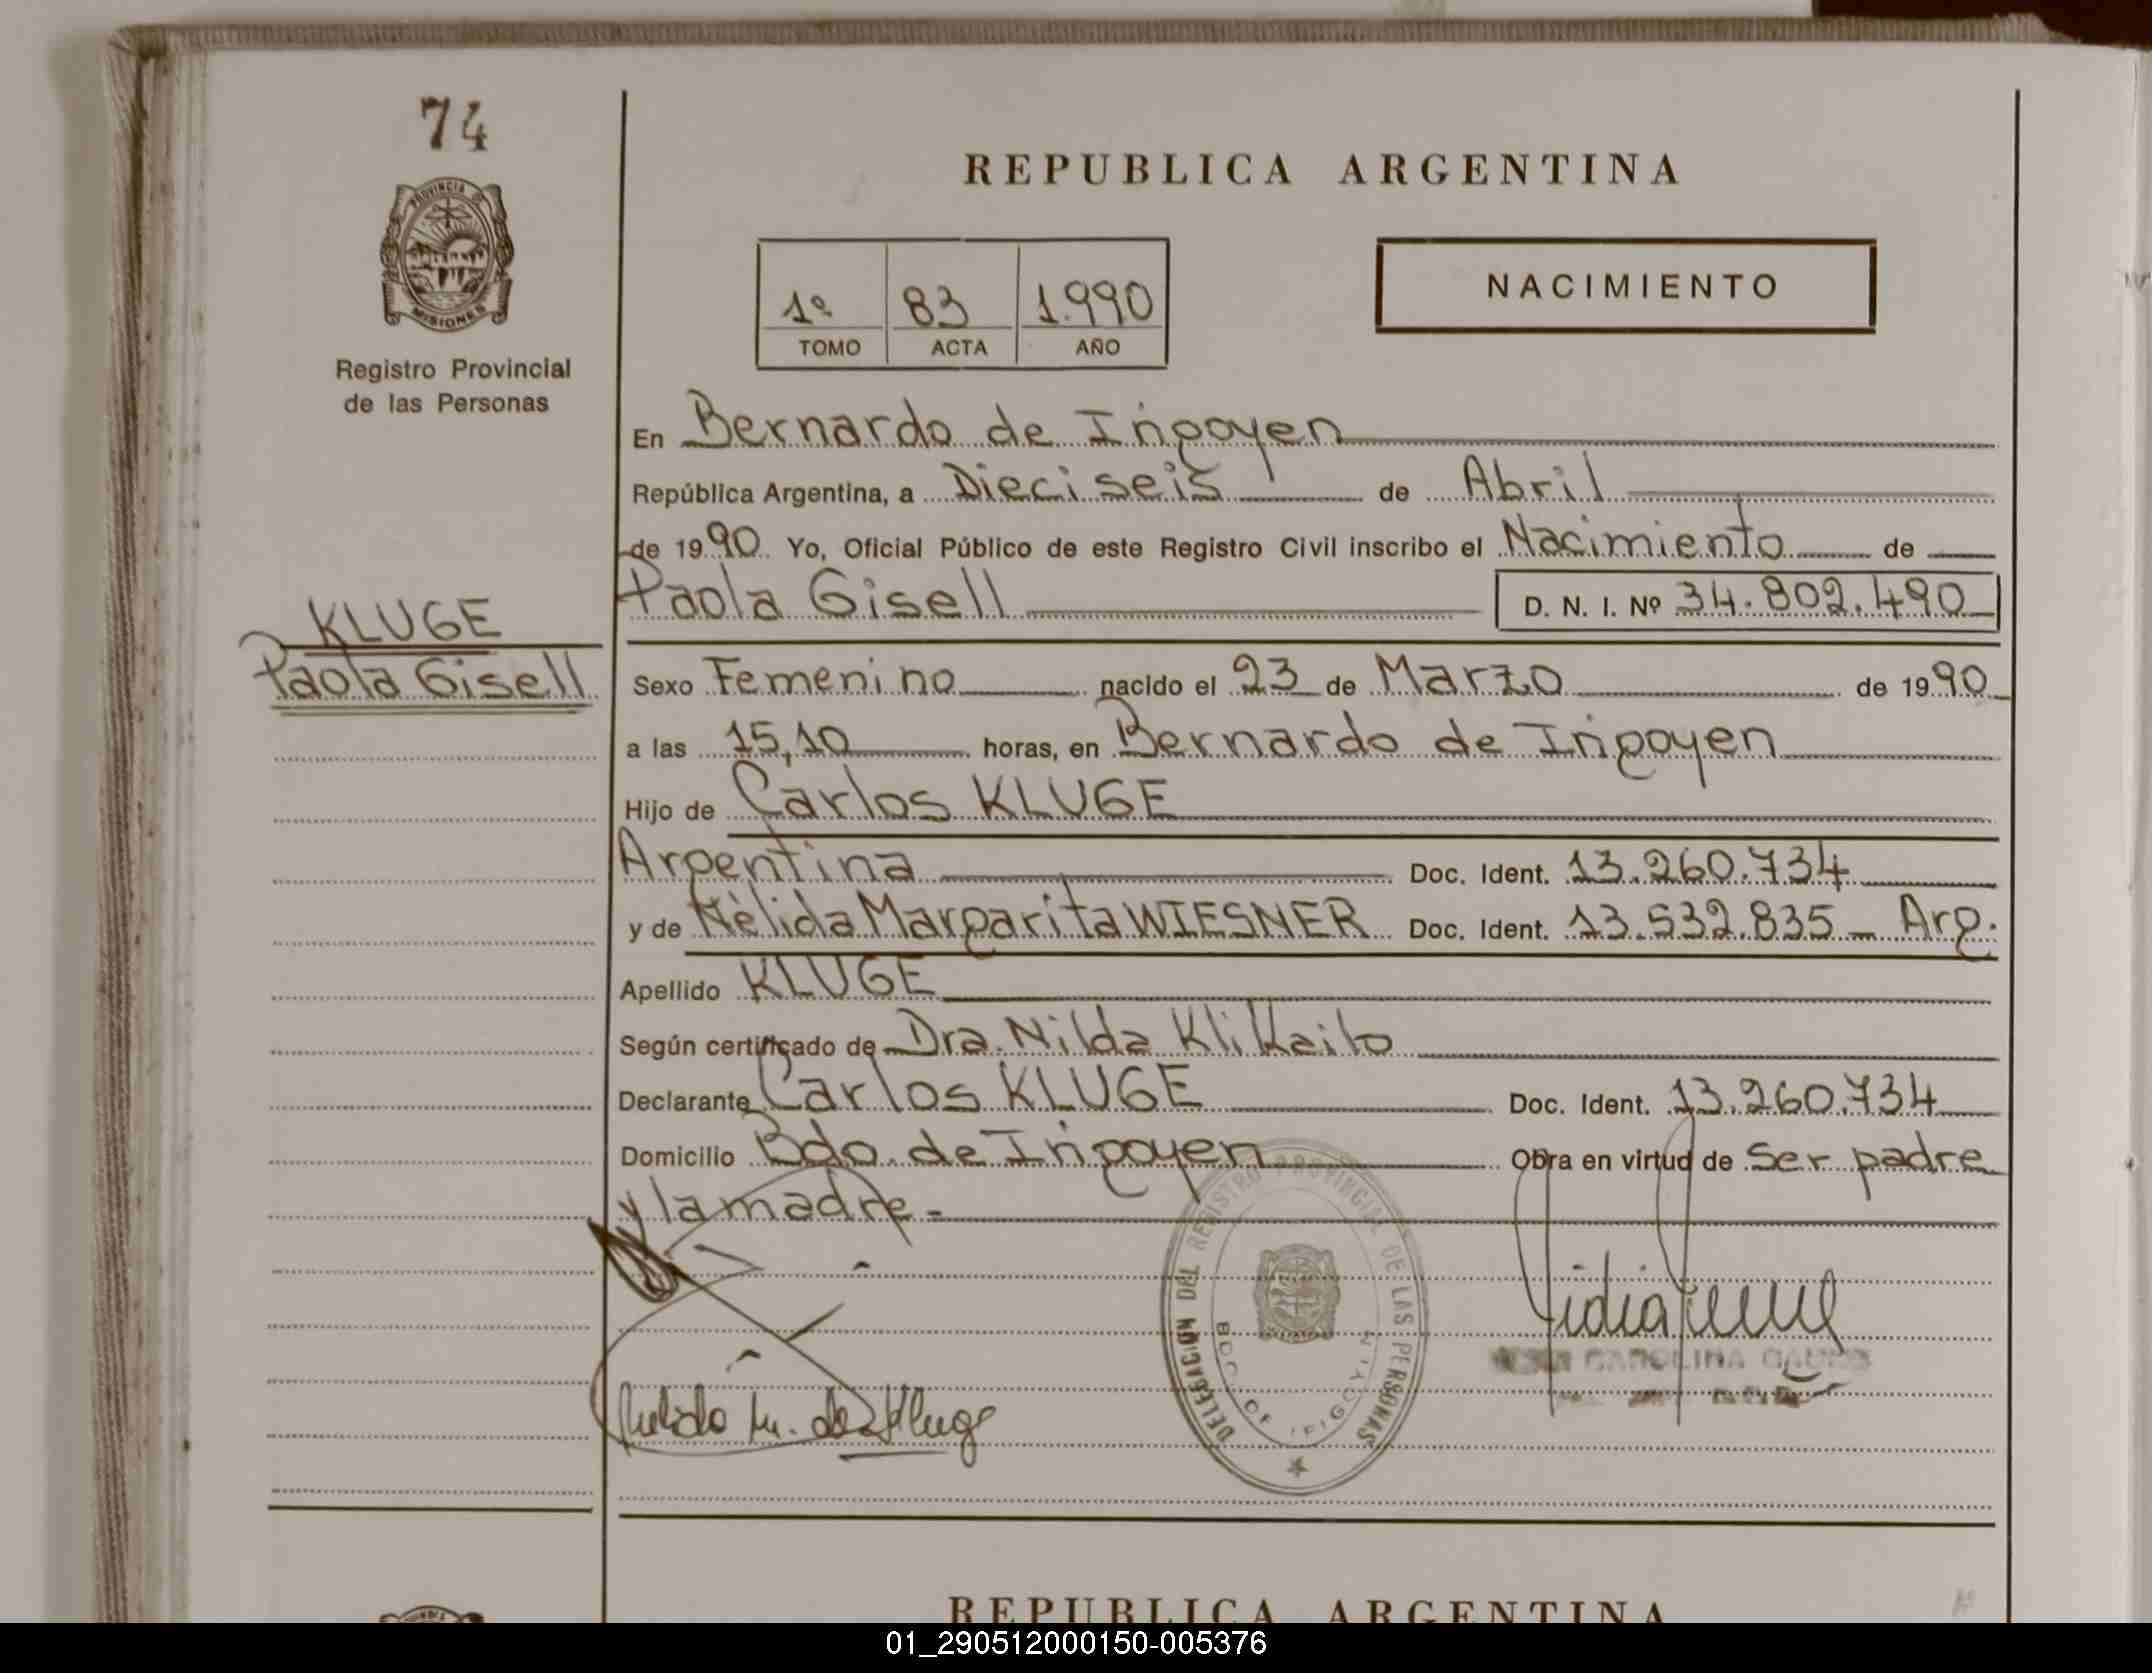 74
PROVINCIA
MISIONES
Registro Provincial
de las Personas
REPUBLICA ARGENTINA
1º 83 1.990
TOMO ACTA AÑO
NACIMIENTO
En Bernardo de Irigoyen
República Argentina, a Dieciseis de Abril
de 1990 Yo, Oficial Público de este Registro Civil inscribo el Nacimiento de
Paola Gisell D. N. I. Nº 34.802.490
KLUGE
Paola Gisell
Sexo Femenino nacido el 23 de Marzo de 1990
a las 15,10 horas, en Bernardo de Irigoyen
Hijo de Carlos KLUGE
Argentina Doc. Ident. 13.260.734
y de Nèlida Margarita WIESNER Doc. Ident. 13.532.835 _ Arg.
Apellido KLUGE
Según certificado de Dra. Nilda Klikailo
Declarante Carlos KLUGE Doc. Ident. 13.260.734
Domicilio Bdo. de Irigoyen Obra en virtud de ser padre
y la madre.-
DELEGACION DEL REGISTRO PROVINCIAL DE LAS PERSONAS
BDO. DE IRIGOYEN
CAROLINA
de Kluge
REPUBLICA ARGENTINA
01_290512000150-005376